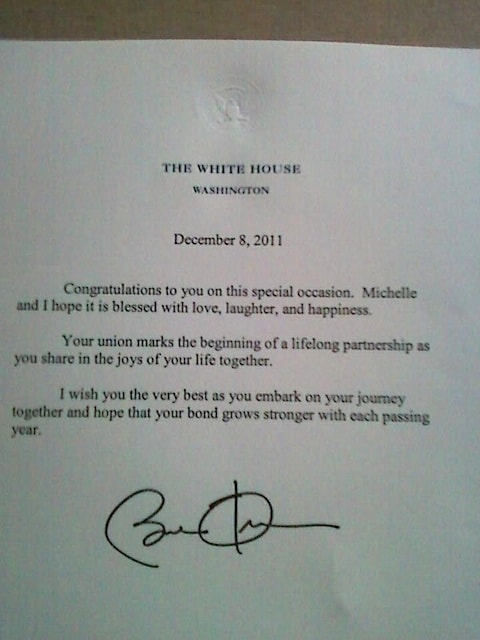 THE WHITE HOUSE
WASHINGTON
December 8, 2011
Congratulations to you on this special occasion. Michelle
and I hope it is blessed with love, laughter, and happiness.
Your union marks the beginning of a lifelong partnership as
you share in the joys of your life together.
I wish you the very best as you embark on your journey
together and hope that your bond grows stronger with each passing
year.